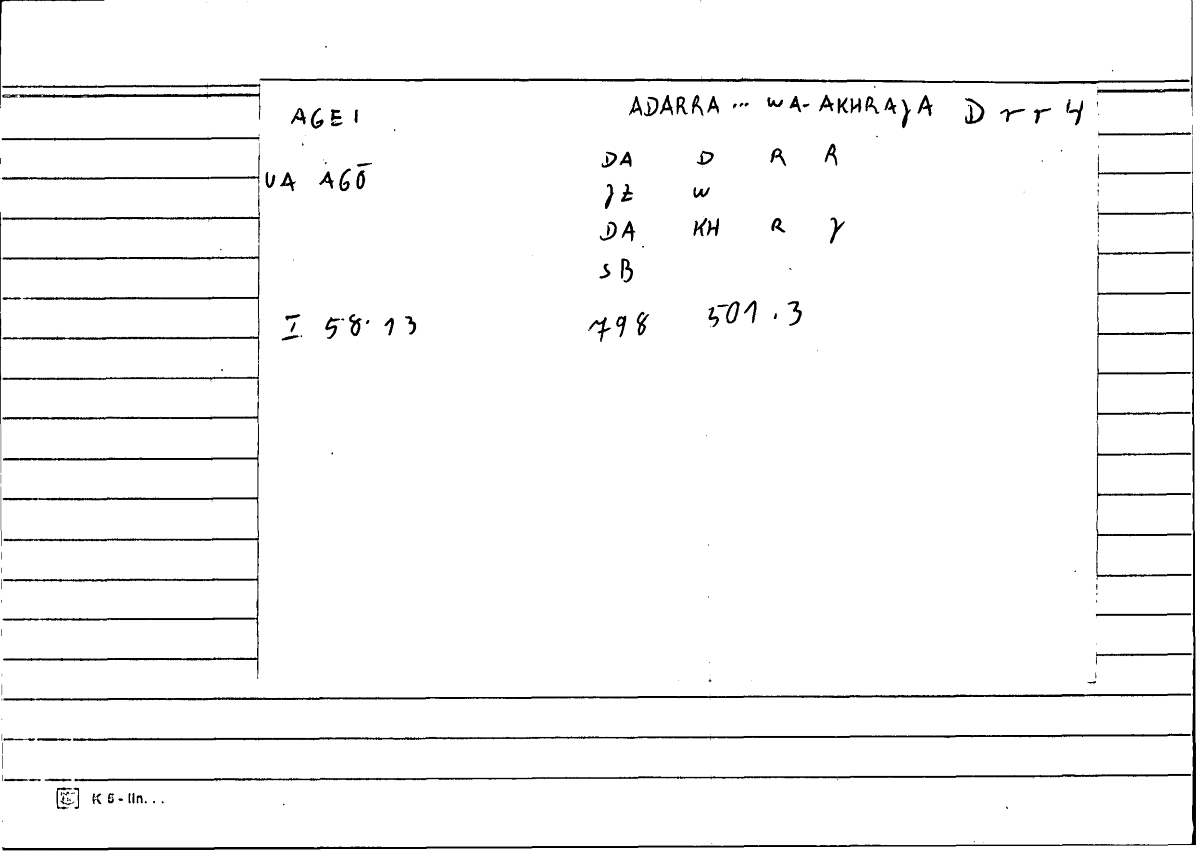 AGEI ADARRA ... WA-AKHRAγA D r r 4
UA AGŌ DA D R R
γZ W
DA KH R γ
SB
I 58.13 798 501.3
K 5 - lin...